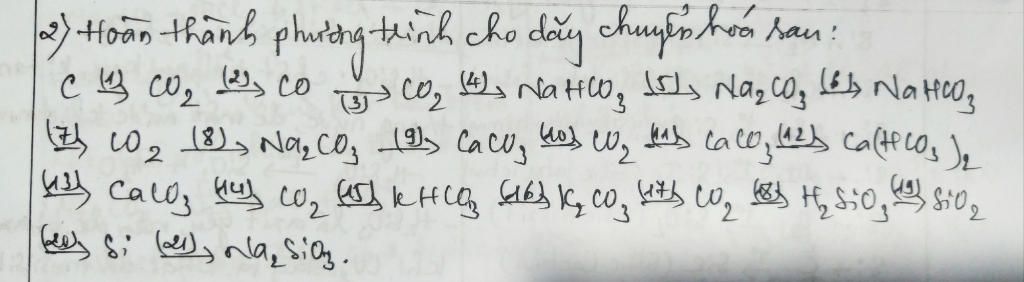 2) Hoàn thành phương trình cho dãy chuyển hoá sau:
C (1)→ CO₂ (2)→ CO →(3) CO₂ (4)→ NaHCO₃ (5)→ Na₂CO₃ (6)→ NaHCO₃
(7)→ CO₂ (8)→ Na₂CO₃ (9)→ CaCO₃ (10)→ CO₂ (11)→ CaCO₃ (12)→ Ca(HCO₃)₂
(13)→ CaCO₃ (14)→ CO₂ (15)→ KHCO₃ (16)→ K₂CO₃ (17)→ CO₂ (18)→ H₂SiO₃ (19)→ SiO₂
(20)→ Si (21)→ Na₂SiO₃.